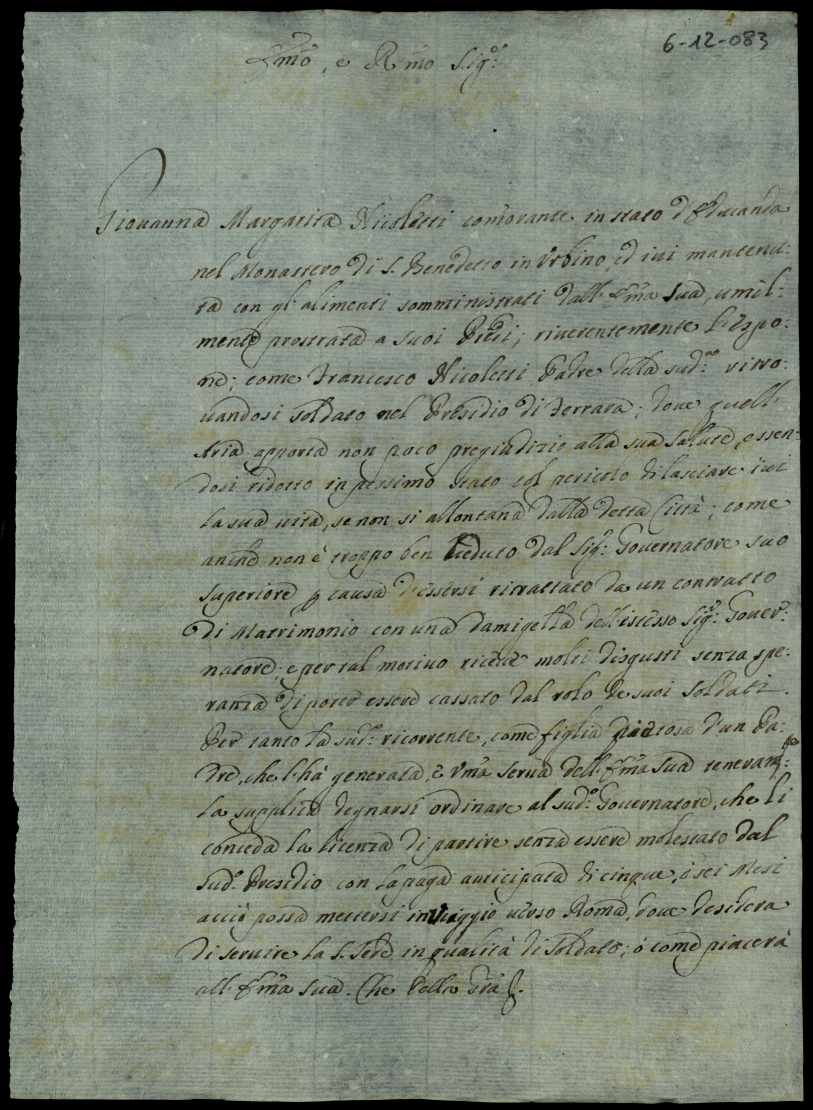 6-12-083
Emo, e Rmo Sig.e
Giovanna Margarita Nicoletti comorante in stato d'Educanda
nel Monastero di S. Benedetto in Urbino, ed ivi mantenu-
ta con gl'alimenti somministrati dall'Ema Sua, umil-
mente prostrata a suoi Piedi; riverentemente l'espo-
ne; come Francesco Nicoletti Padre della sud.a ritro-
uandosi soldato nel Presidio di Ferrara; doue quell'
Aria apporta non poco pregiudizio alla sua salute, essen-
dosi ridotto in pessimo stato col pericolo di lasciare iui
la sua uita, se non si allontana dalla detta Città; come
anche non è troppo ben ueduto dal Sig.e Gouernatore suo
Superiore p causa d'essersi ritrattato da un contratto
di Matrimonio con una damigella dell'istesso Sig.e Gouer-
natore; e per tal motiuo riceue molti disgusti senza spe-
ranza di poter essere cassato dal rolo de suoi Soldati.
Per tanto la sud.a ricorrente, come figlia pietosa d'un Pa-
dre, che l'hà generata, e Uma serua dell'Ema Sua teneram.te
la supplica degnarsi ordinare al sud.o Gouernatore, che li
conceda la licenza di partire senza essere molestato dal
sud.o Presidio con la paga anticipata di cinque, ò sei Mesi
acciò possa mettersi in Viaggio uerso Roma, doue desidera
di seruire la S. Sede in qualità di Soldato; ò come piacerà
all'Ema Sua. Che della Grà